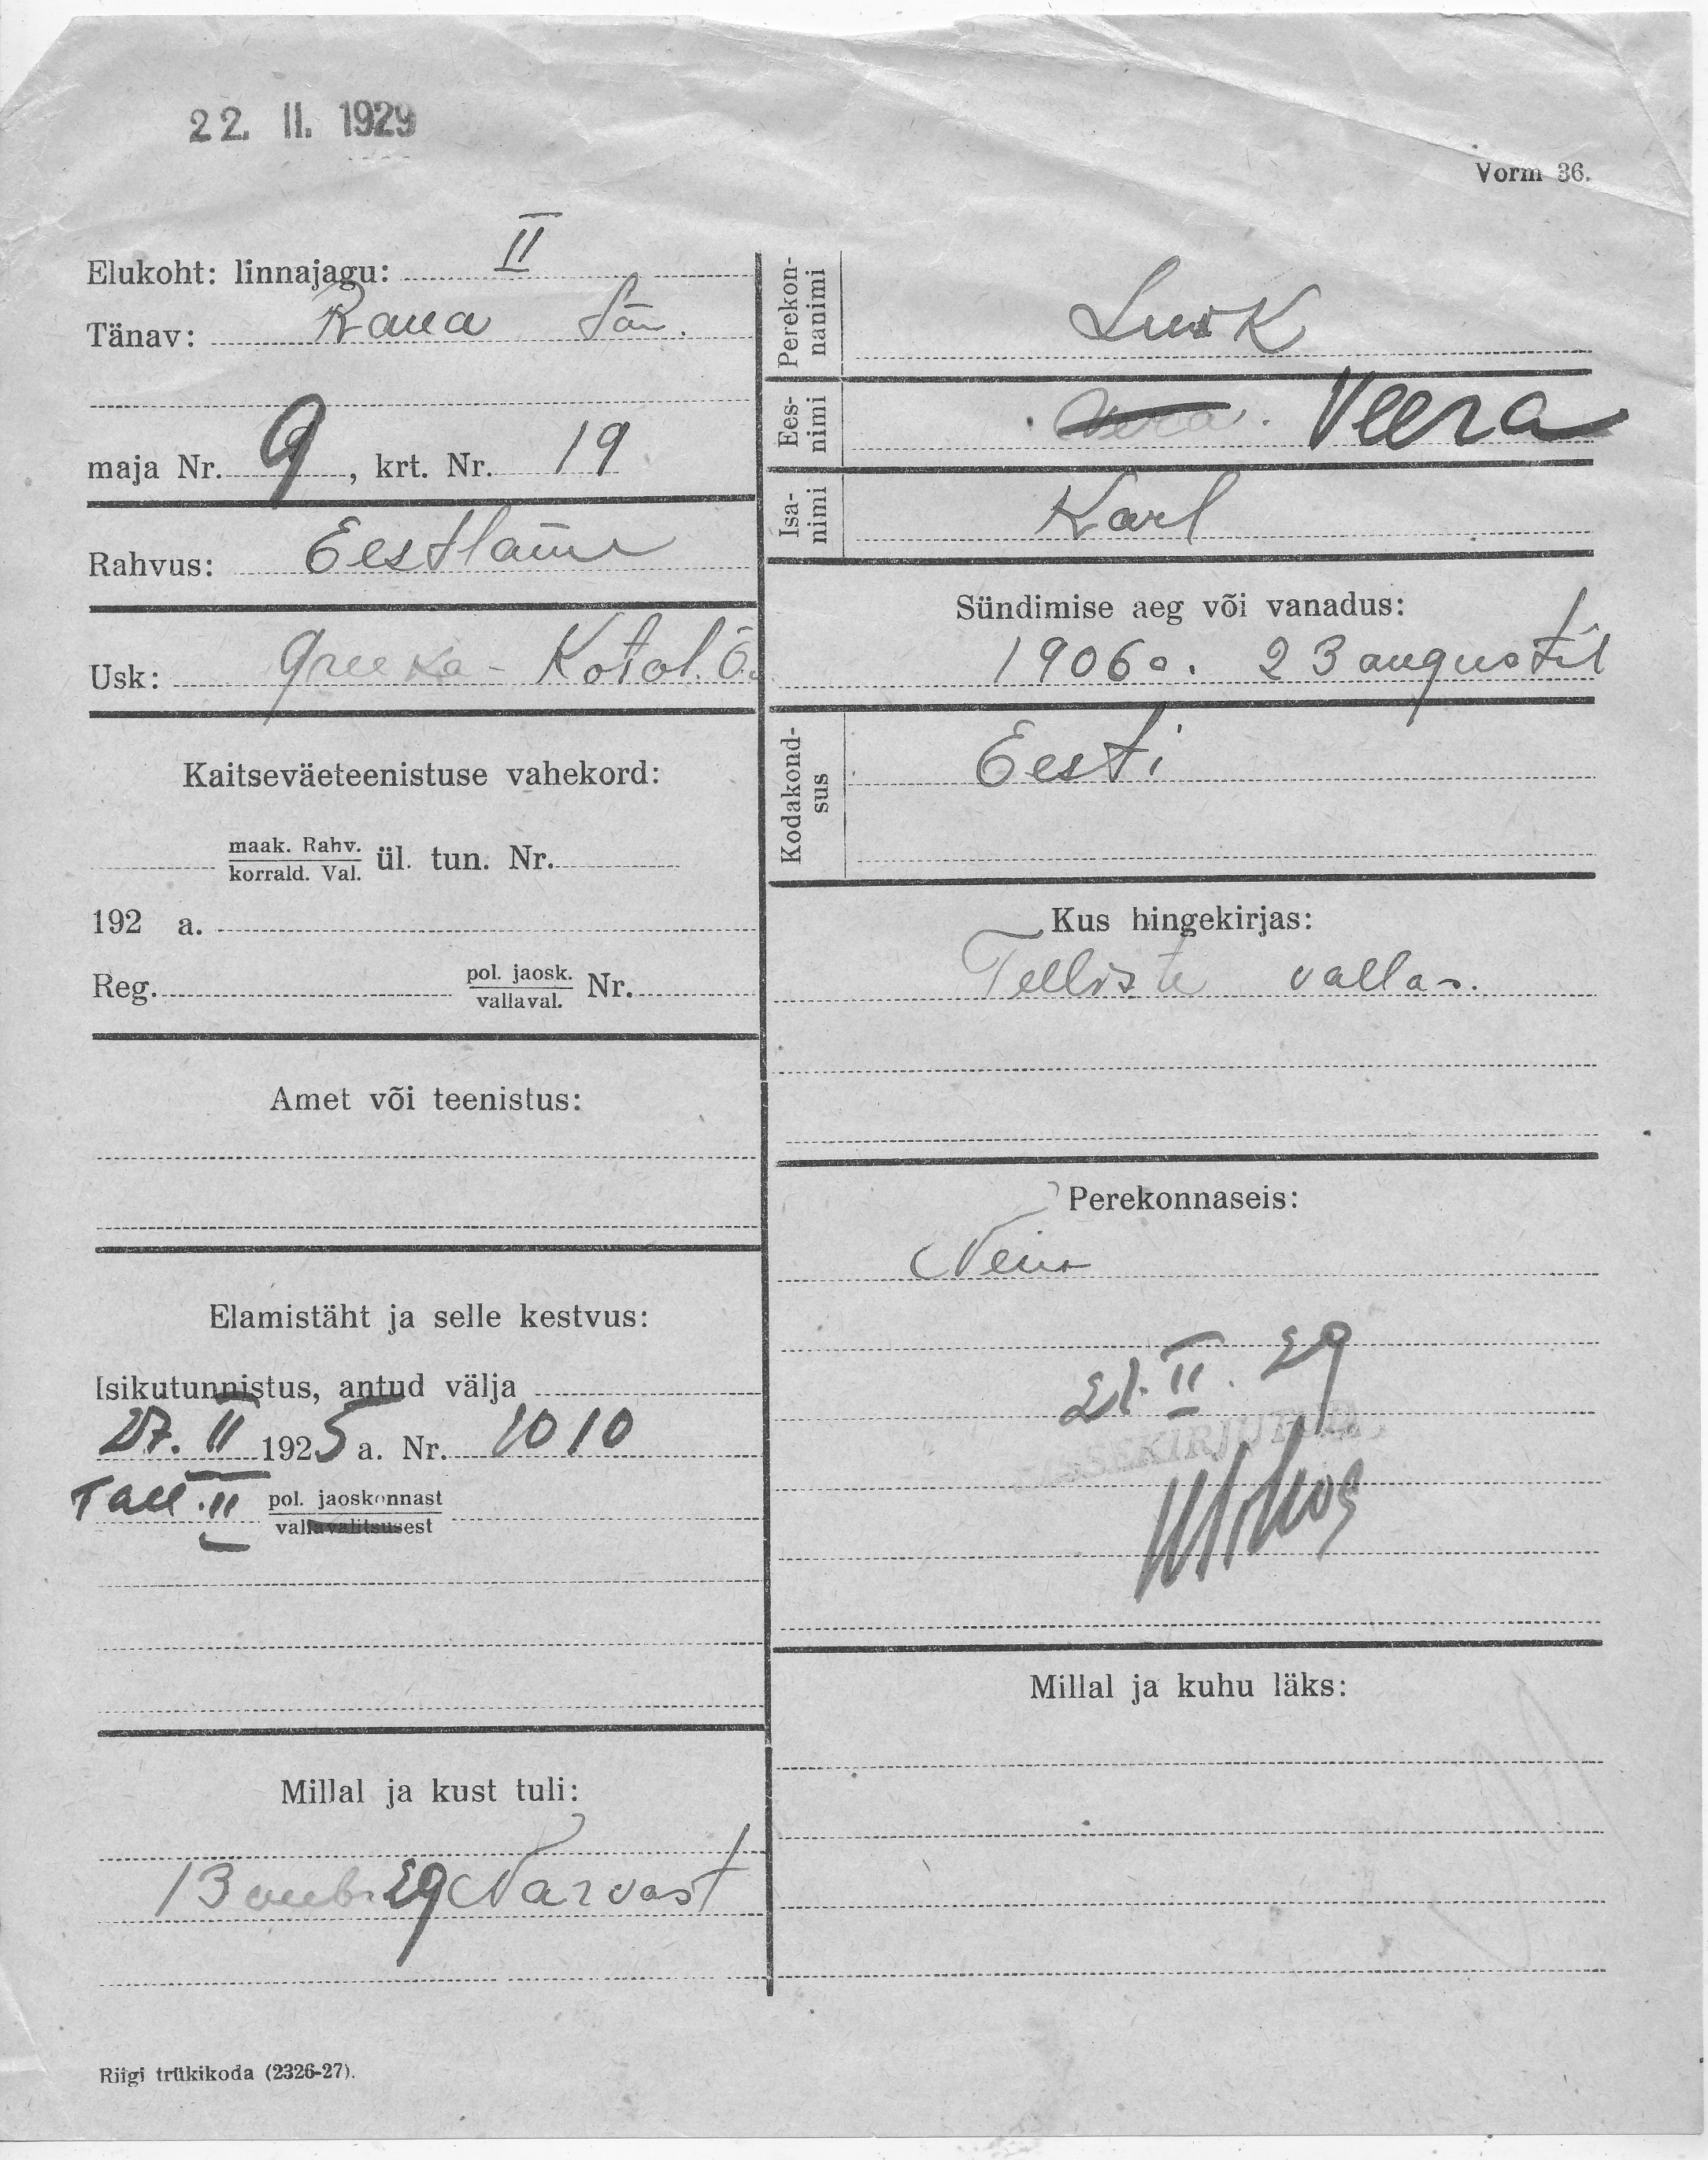 22. II. 1929
Vorm 36.
Elukoht: linnajagu: II
Tänav: Raua tän.
maja Nr. 9, krt. Nr. 19
Rahvus: Eestlane
Usk: Greeka-Katol. õ.
Kaitseväeteenistuse vahekord:
maak. Rahv.
korrald. Val. ül. tun. Nr.
192 a.
Reg. pol. jaosk. Nr.
vallaval.
Amet või teenistus:
Elamistäht ja selle kestvus:
Isikutunnistus, antud välja
27. II 1925 a. Nr. 1010
Tall. II pol. jaoskonnast
vallavalitsusest
Millal ja kust tuli:
13 29 Narvast
Riigi trükikoda (2326-27).
Perekon-
nanimi
Lusk
Ees-
nimi
Vera. Veera
Isa-
nimi
Karl
Sündimise aeg või vanadus:
1906 a. 23 augustil
Kodakond-
sus
Eesti
Kus hingekirjas:
Telliste vallas.
Perekonnaseis:
Neiu
21. II. 29
SISSEKIRJUTUD
Millal ja kuhu läks: